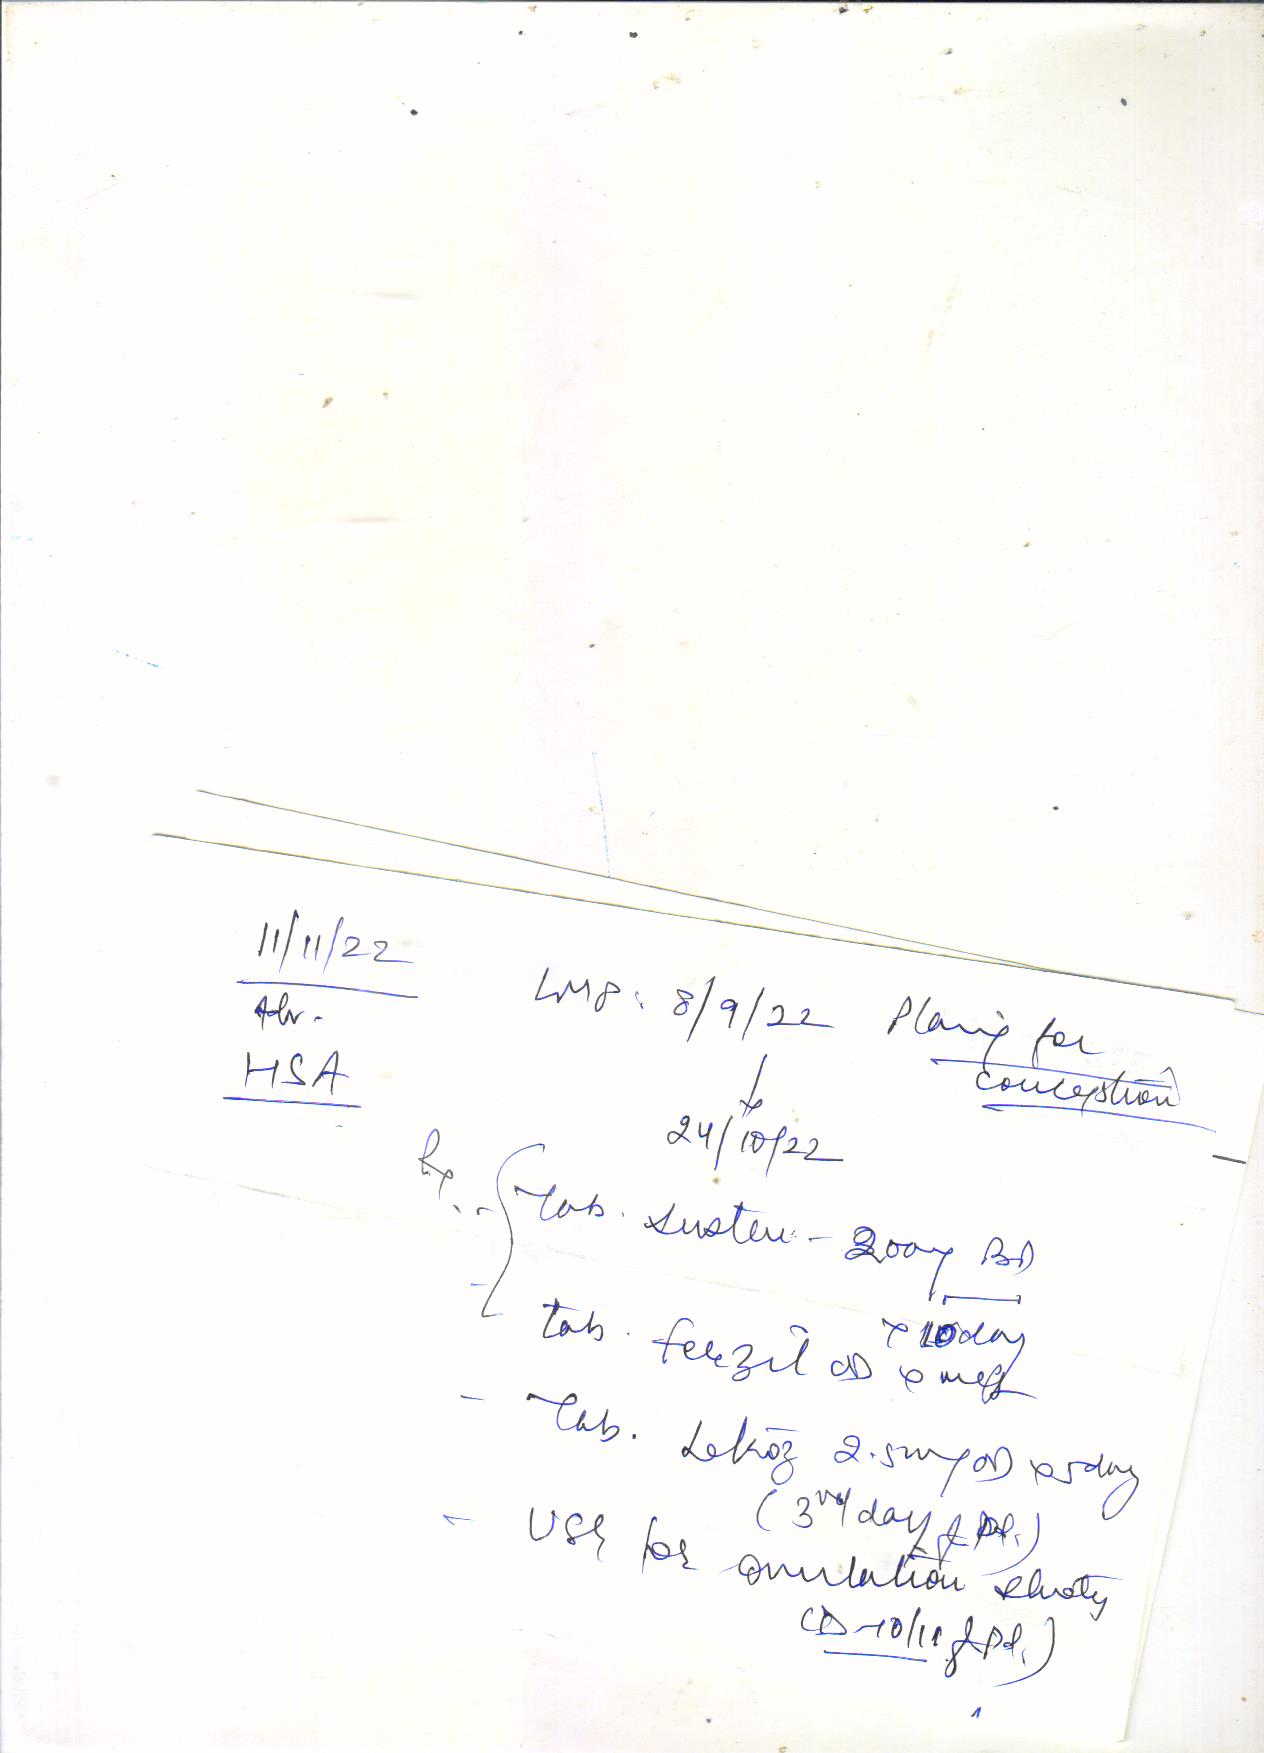 11/11/22
Adv.
HSA
LMP: 8/9/22 Planig for
conception
24/10/22
Rx
Tab. Susten - 200mg BD
x 10day
Tab. Fekzil OD x
- Tab. Letroz 2.5mg OD x 5day
(3rd day of Pd.)
- USG for ovulation study
CD-10/11 of Pd.)